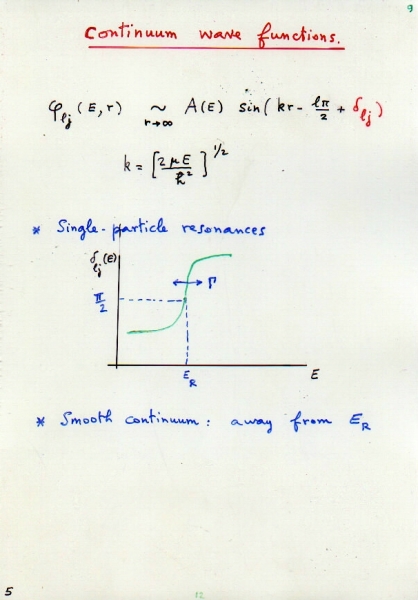 9
Continuum wave functions.
φ_lj (E, r) ~ r→∞ A(E) sin( kr - lπ/2 + δ_lj )
k = [ 2μE / ħ² ]^1/2
* Single-particle resonances
δ_lj (E)
Γ
π/2
E_R E
* Smooth continuum: away from E_R
5 12